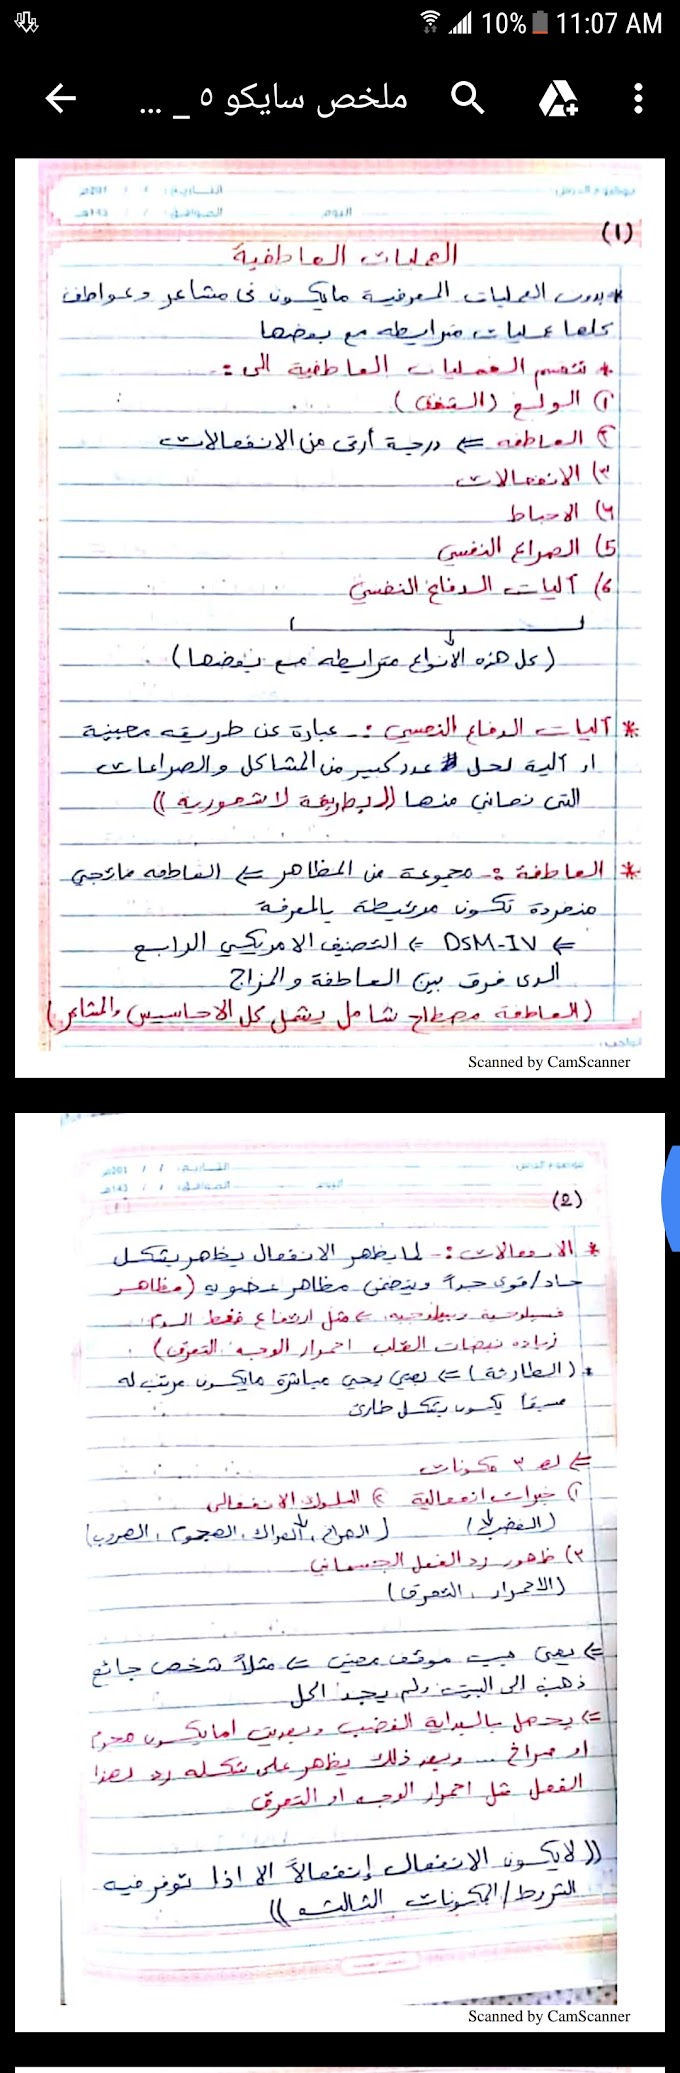 10% 11:07 AM
ملخص سايكو ٥ _ ...
(1)
العمليات العاطفية
* بدون العمليات المعرفية مايكون في مشاعر وعواطف
كلها عمليات مترابطه مع بعضها
* تنقسم العمليات العاطفية الى :-
١) الولع (الشغف)
٢) العاطفه ⇐ درجة أرقى من الانفعالات
٣) الانفعالات
٤) الاحباط
5) الصراع النفسي
6) آليات الدفاع النفسي
(كل هذه الأنواع مترابطه مع بعضها)
* آليات الدفاع النفسي :- عبارة عن طريقه معينة
او آلية لحل عدد كبير من المشاكل والصراعات
التي نعاني منها ((بطريقة لا شعورية))
* العاطفة :- مجموعة من المظاهر ⇐ العاطفه ماتجي
منفردة تكون مرتبطة بالمعرفة
⇐ DSM-IV = التصنيف الامريكي الرابع
الذي فرق بين العاطفة والمزاج
(العاطفة مصطلح شامل يشمل كل الاحاسيس والمشاعر)
Scanned by CamScanner
(2)
* الانفعالات :- لما يظهر الانفعال يظهر بشكل
حاد/قوي جداً ويتضمن مظاهر عضويه (مظاهر
فسيلوجية وبيلوجيه ⇐ مثل ارتفاع ضغط الدم
زياده نبضات القلب احمرار الوجه التعرق)
* (الطارئة) ⇐ يعني يجي مباشرة مايكون مرتب له
مسبقاً يكون بشكل طارئ
⇐ له ٣ مكونات
١) خبرات انفعالية ٢) السلوك الانفعالي
(الغضب) (الصراخ، العراك، الهجوم، الهروب)
٣) ظهور رد الفعل الجسماني
(الاحمرار، التعرق)
⇐ يعني حسب موقف معين ⇐ مثلاً شخص جائع
ذهب الى البيت ولم يجد اكل
⇐ يحصل بالبداية الغضب وبعدين اما يكون هجوم
او صراخ ... وبعد ذلك يظهر على شكله رد لهذا
الفعل مثل احمرار الوجه او التعرق
((لايكون الانفعال إنفعالاً الا اذا توفر فيه
الشروط/المكونات الثالثه))
Scanned by CamScanner